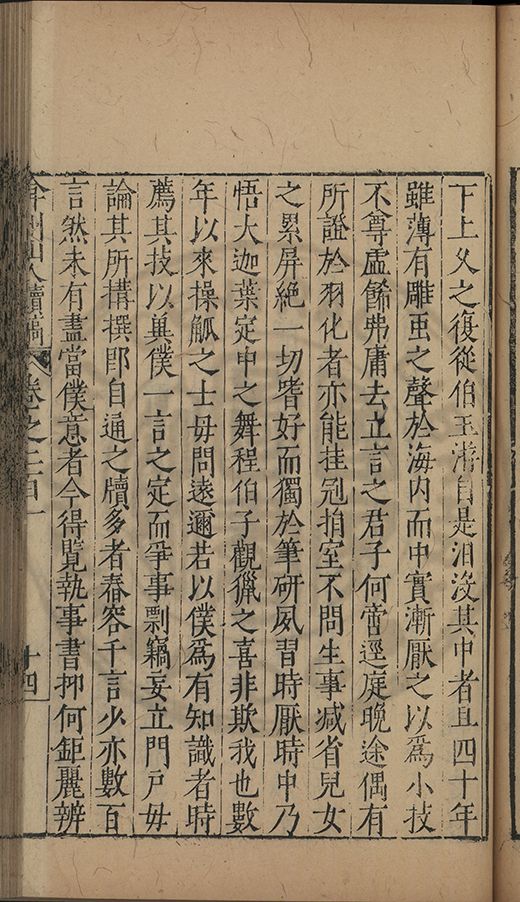 下上乂之復從伯玉游自是汨没其中者且四十年
雖薄有雕䖝之聲於海内而中實漸厭之以爲小技
不尊虛餙弗庸去立言之君子何啻逕庭晚途偶有
所證於羽化者亦能挂冠掃室不問生事减省兒女
之累屏絶一切嗜好而獨於筆研夙習時厭時中乃
悟大迦葉定中之舞程伯子觀獵之喜非欺我也數
年以來操觚之士毋問遠邇若以僕爲有知識者時
薦其技以兾僕一言之定而爭事剽竊妄立門戸毋
論其所搆撰卽自通之牘多者舂容千言少亦數百
言然未有盡當僕意者今得覧執事書抑何鉅麗辨
弇州山人續稿 卷之二百一 十四